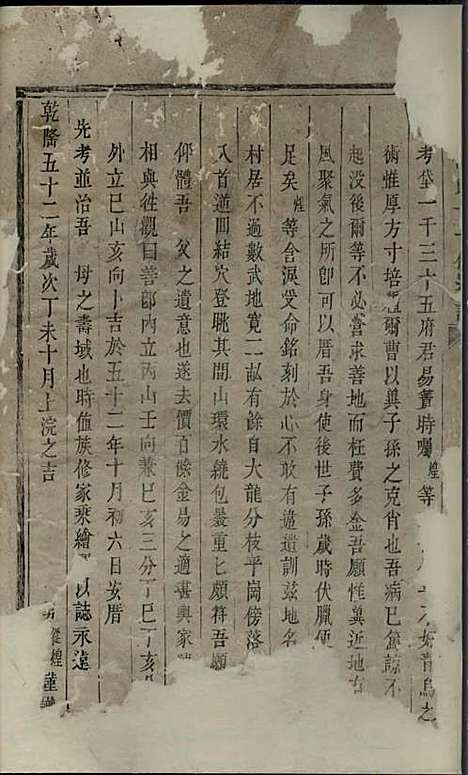 考垈一千三十五府君易簀時囑煌等 如青烏之
術惟厚方寸培植爾曹以冀子孫之克肖也吾病已篤諒不
起没後爾等不必營求善地而枉費多金吾願惟冀近地有
風聚氣之所即可以厝吾身使後世子孫歲時伏臘便
足矣煌等含淚受命銘刻於心不敢有違遺訓玆地名
村居不過數武地寬二畝有餘自大龍分枝平崗傍落
入首道回結穴登眺其間山環水繞包裹重匕頗符吾願
仰體吾 父之遺意也遂去價百餘金易之適堪輿家
相與徃觀曰善郎內立丙山壬向兼巳亥三分丁巳丁亥
外立巳山亥向卜吉於五十二年十月初六日安厝
先考並治吾 母之壽域也時值族修家乘繪 以誌永遠
乾隆五十二年歲次丁未十月上浣之吉
煌 謹